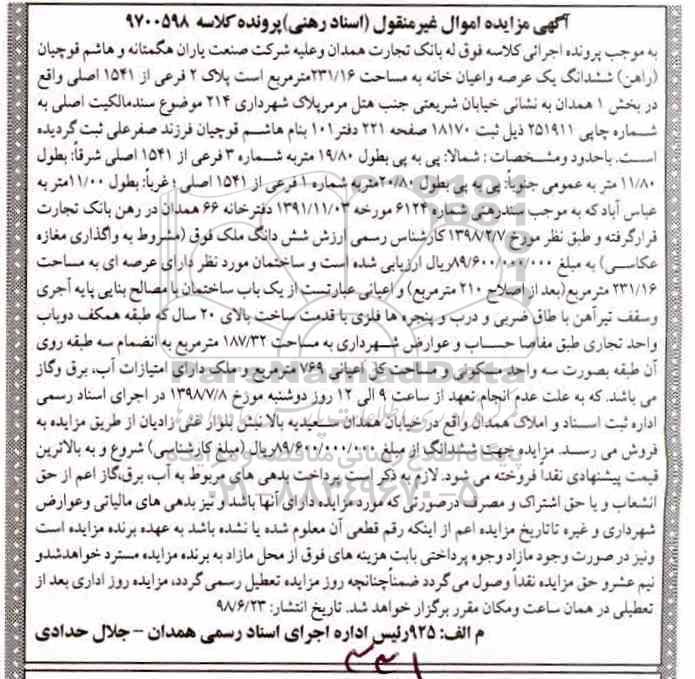 آگهی مزایده اموال غیرمنقول (اسناد رهنی) پرونده کلاسه ۹۷۰۰۵۹۸
به موجب پرونده اجرائی کلاسه فوق له بانک تجارت همدان وعلیه شرکت صنعت یاران هگمتانه و هاشم قوچیان
(راهن) ششدانگ یک عرصه واعیان خانه به مساحت ۲۳۱/۱۶مترمربع است پلاک ۲ فرعی از ۱۵۴۱ اصلی واقع
در بخش ۱ همدان به نشانی خیابان شریعتی جنب هتل مرمرپلاک شهرداری ۲۱۴ موضوع سندمالکیت اصلی به
شماره چاپی ۲۵۱۹۱۱ ذیل ثبت ۱۸۱۷۰ صفحه ۲۲۱ دفتر۱۰۱ بنام هاشم قوچیان فرزند صفرعلی ثبت گردیده
است. باحدود ومشخصات : شمالا: پی به پی بطول ۱۹/۸۰ متربه شماره ۳ فرعی از ۱۵۴۱ اصلی شرقاً: بطول
۱۱/۸۰ متر به عمومی جنوباً: پی به پی بطول ۲۰/۸۰متربه شماره ۱ فرعی از ۱۵۴۱ اصلی ؛ غرباً: بطول ۱۱/۰۰متر به
عباس آبادکه به موجب سندرهنی شماره ۶۱۲۴ مورخه ۱۳۹۱/۱۱/۰۳ دفترخانه ۶۶ همدان در رهن بانک تجارت
قرارگرفته و طبق نظر مورخ ۱۳۹۸/۲/۷ کارشناس رسمی ارزش شش دانگ ملک فوق (مشروط به واگذاری مغازه
عکاسی) به مبلغ ۸۹/۶۰۰/۰۰۰/۰۰۰ریال ارزیابی شده است و ساختمان مورد نظر دارای عرصه ای به مساحت
۲۳۱/۱۶ مترمربع(بعد از اصلاح ۲۱۰ مترمربع) و اعیانی عبارتست از یک باب ساختمان با مصالح بنایی پایه آجری
وسقف تیرآهن با طاق ضربی و درب و پنجره ها فلزی با قدمت ساخت بالای ۲۰ سال که طبقه همکف دوباب
واحد تجاری طبق مفاصا حساب و عوارض شهرداری به مساحت ۱۸۷/۳۲ مترمربع به انضمام سه طبقه روی
آن طبقه بصورت سه واحد مسکونی و مساحت کل اعیانی ۷۶۹ مترمربع و ملک دارای امتیازات آب، برق وگاز
می باشد. که به علت عدم انجام تعهد از ساعت ۹ الی ۱۲ روز دوشنبه مورخ ۱۳۹۸/۷/۸ در اجرای اسناد رسمی
اداره ثبت اسناد و املاک همدان واقع در خیابان همدان سعیدیه بالا نبش بلوار غنی زادیان از طریق مزایده به
فروش می رسد. مزایده جهت ششدانگ از مبلغ ۸۹/۶۰۰/۰۰۰/۰۰۰ریال (مبلغ کارشناسی) شروع و به بالاترین
قیمت پیشنهادی نقداً فروخته می شود. لازم به ذکر است پرداخت بدهی های مربوط به آب، برق،گاز اعم از حق
انشعاب و یا حق اشتراک و مصرف درصورتی که مورد مزایده دارای آنها باشد و نیز بدهی های مالیاتی وعوارض
شهرداری و غیره تاتاریخ مزایده اعم از اینکه رقم قطعی آن معلوم شده یا نشده باشد به عهده برنده مزایده است
ونیز در صورت وجود مازاد وجوه پرداختی بابت هزینه های فوق از محل مازاد به برنده مزایده مسترد خواهدشدو
نیم عشرو حق مزایده نقداً وصول می گردد ضمناًچنانچه روز مزایده تعطیل رسمی گردد، مزایده روز اداری بعد از
تعطیلی در همان ساعت ومکان مقرر برگزار خواهد شد. تاریخ انتشار: ۹۸/۶/۲۳
م الف: ۹۲۵رئیس اداره اجرای اسناد رسمی همدان - جلال حدادی